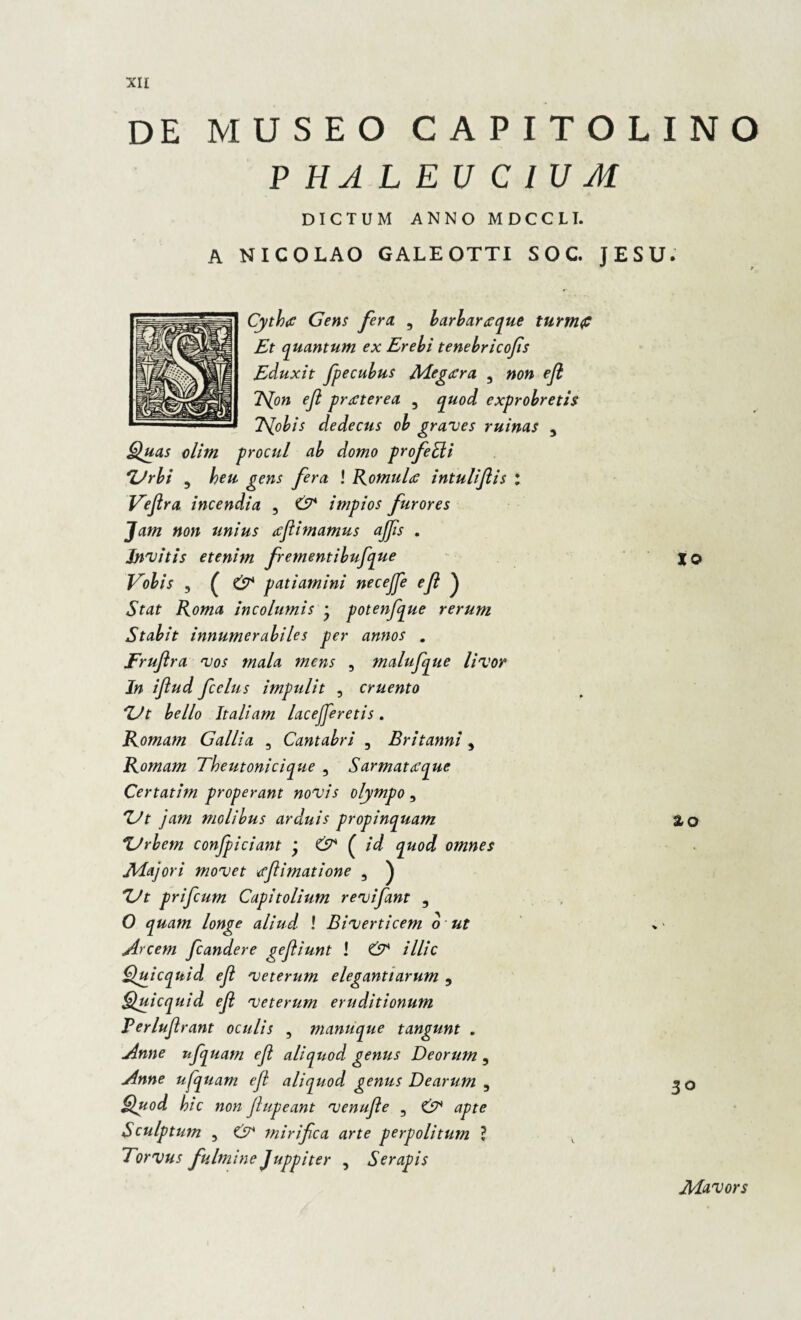 XII
DE MUSEO CAPITOLINO
PHALEUCIUM
DICTUM ANNO MDCCLI.
A NICOLAO GALEOTTI SOC. JESU.
SCythæ Gens fera , barbaræque turmæ
Et quantum ex Erebi tenebricoſis
Eduxit ſpecubus Megæra , non eſt
Non eſt præterea , quod exprobretis
Nobis dedecus ob graves ruinas ,
Quas olim procul ab domo profecti
Urbi , heu gens fera ! Romulæ intuliſtis :
Veſtra incendia , & impios furores
Jam non unius æſtimamus aſſis .
Invitis etenim frementibuſque 10
Vobis , ( & patiamini neceſſe eſt )
Stat Roma incolumis ; potenſque rerum
Stabit innumerabiles per annos .
Fruſtra vos mala mens , maluſque livor
In iſtud ſcelus impulit , cruento
Ut bello Italiam laceſſeretis .
Romam Gallia , Cantabri , Britanni ,
Romam Theutonicique , Sarmatæque
Certatim properant novis olympo ,
Ut jam molibus arduis propinquam 20
Urbem conſpiciant ; & ( id quod omnes
Majori movet æſtimatione , )
Ut priſcum Capitolium reviſant ,
O quam longe aliud ! Biverticem ò ut
Arcem ſcandere geſtiunt ! & illic
Quicquid eſt veterum elegantiarum ,
Quicquid eſt veterum eruditionum
Perluſtrant oculis , manuque tangunt .
Anne uſquam eſt aliquod genus Deorum ,
Anne uſquam eſt aliquod genus Dearum , 30
Quod hic non ſtupeant venuſte , & apte
Sculptum , & mirifica arte perpolitum ?
Torvus fulmine Juppiter , Serapis
Mavors